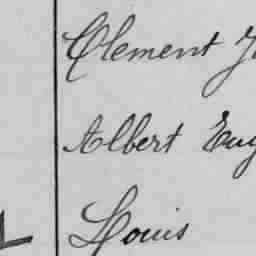 Clement
Albert Eug
Louis